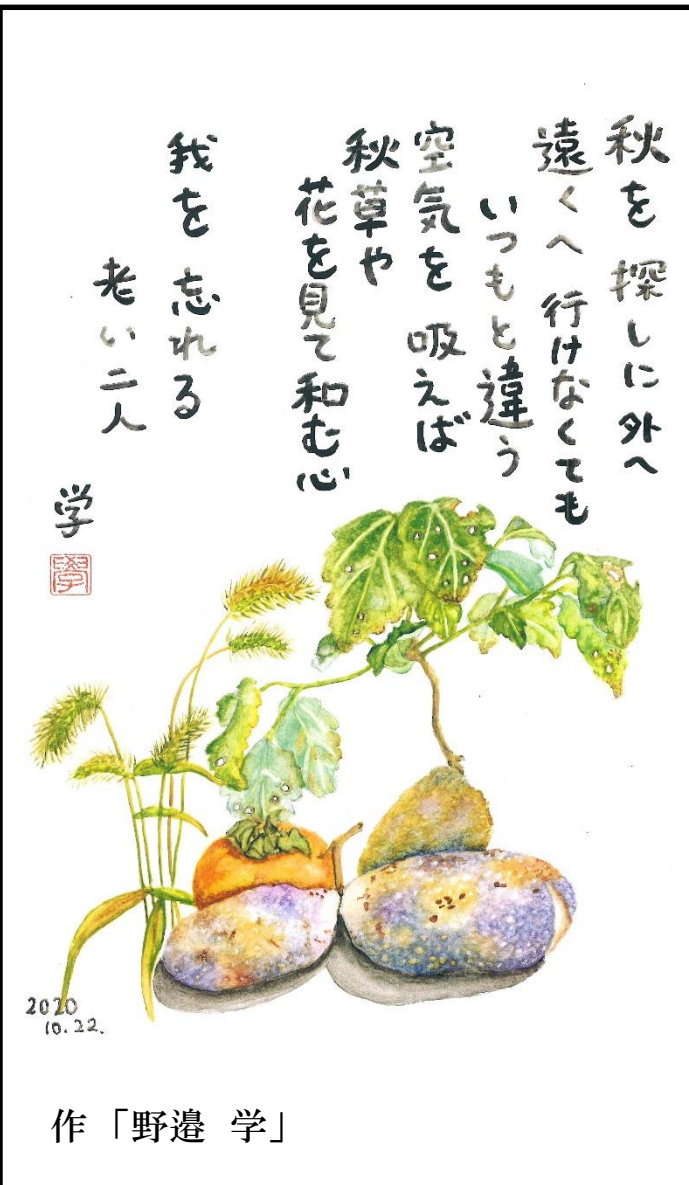 秋を 探しに 外へ
遠くへ 行けなくても
いつもと違う
空気を 吸えば
秋草や
花を見て和む心
我を 忘れる
老い二人
学
學
2020
10.22.
作「野邉 学」